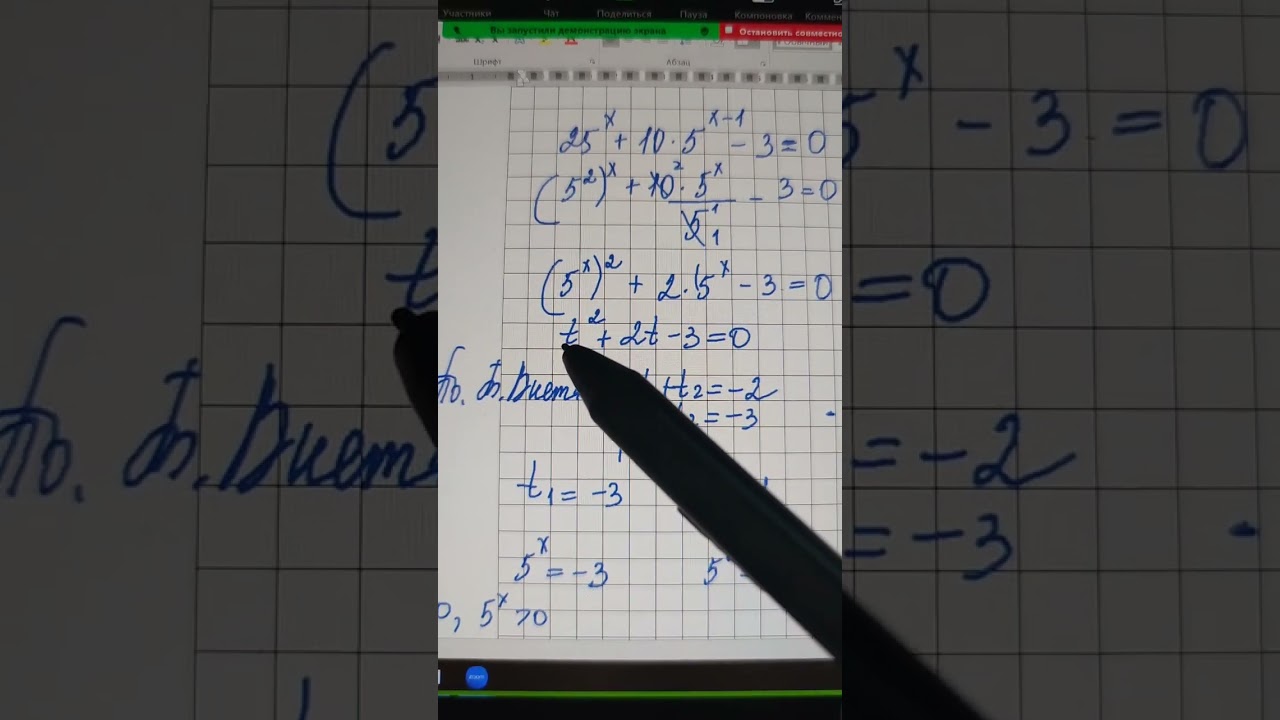 Участники Чат Поделиться Пауза Компоновка Коммен
Вы запустили демонстрацию экрана Остановить совместно
Шрифт Абзац
25^x + 10 · 5^(x-1) - 3 = 0
(5^2)^x + 10 · 5^x / 5^1 - 3 = 0
2
1
(5^x)^2 + 2 · 5^x - 3 = 0
t^2 + 2t - 3 = 0
По. т. Виет + t2 = -2
= -3
t1 = -3
5^x = -3 5
, 5^x > 0
zoom
(5 5^x - 3 = 0
t = 0
По. т. Виет = -2
= -3